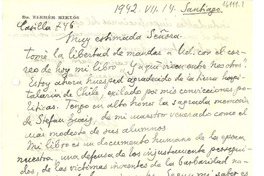 Dr. FARKÉR MIKLÓS
1942. VII. 14. Santiago.
Casilla 276.
Muy estimada Señora.
Tomé la libertad de mandar a Ud. con el cor-
reo de hoy mi libro "Y aqui viven entre otros".
Estoy ahora huesped agradecido de la tierra hospi-
talaria de Chile, exilado por mis convicciones po-
liticas. Tengo en alto honor la sagrada memoria
de Stefan Zweig, de mi maestro venerado como el
mas modesto de sus alumnos
Mi libro es un documento humano de la epoca
nuestra, una defensa de los injustamente persegui-
dos, de las victimas inocentes de la barbaridad na-